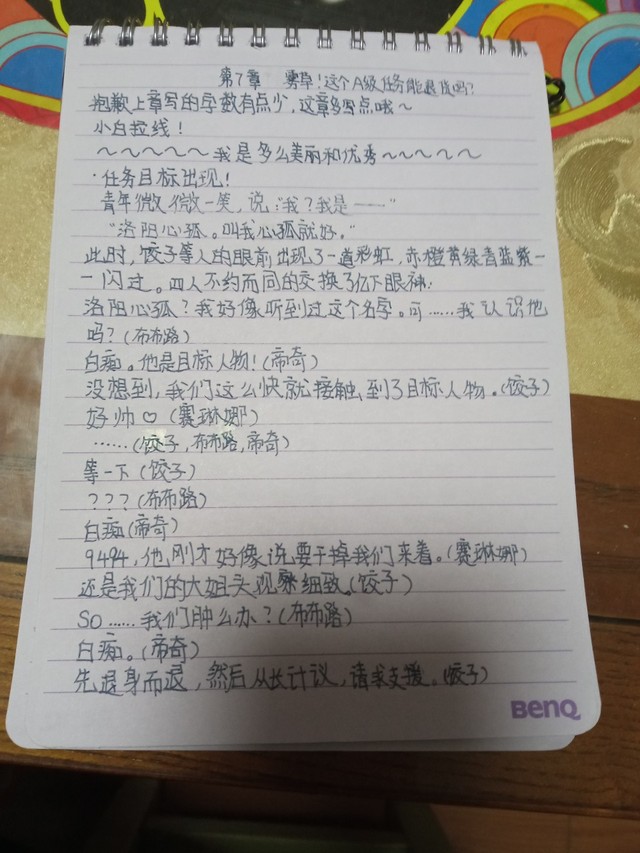 第7章 卧草！这个A级任务能退货吗？
抱歉上章写的字数有点少，这章多写点哦～
小白拉线！
～～～～～我是多么美丽和优秀～～～～～
·任务目标出现！
青年微微一笑，说：“我？我是——”
“洛阳心狐。叫我心狐就好。”
此时，饺子等人的眼前出现了一道彩虹，赤橙黄绿青蓝紫一
一闪过。四人不约而同的交换了下眼神.
洛阳心狐？我好像听到过这个名字。可……我认识他
吗？(布布路)
白痴。他是目标人物！(帝奇)
没想到，我们这么快就接触到了目标人物。(饺子)
好帅♡(赛琳娜)
……(饺子，布布路，帝奇)
等一下(饺子)
？？？(布布路)
白痴(帝奇)
9494，他刚才好像说要干掉我们来着。(赛琳娜)
还是我们的大姐头观察细致。(饺子)
SO……我们肿么办？(布布路)
白痴。(帝奇)
先退身而退，然后从长计议，请求支援。(饺子)
BenQ